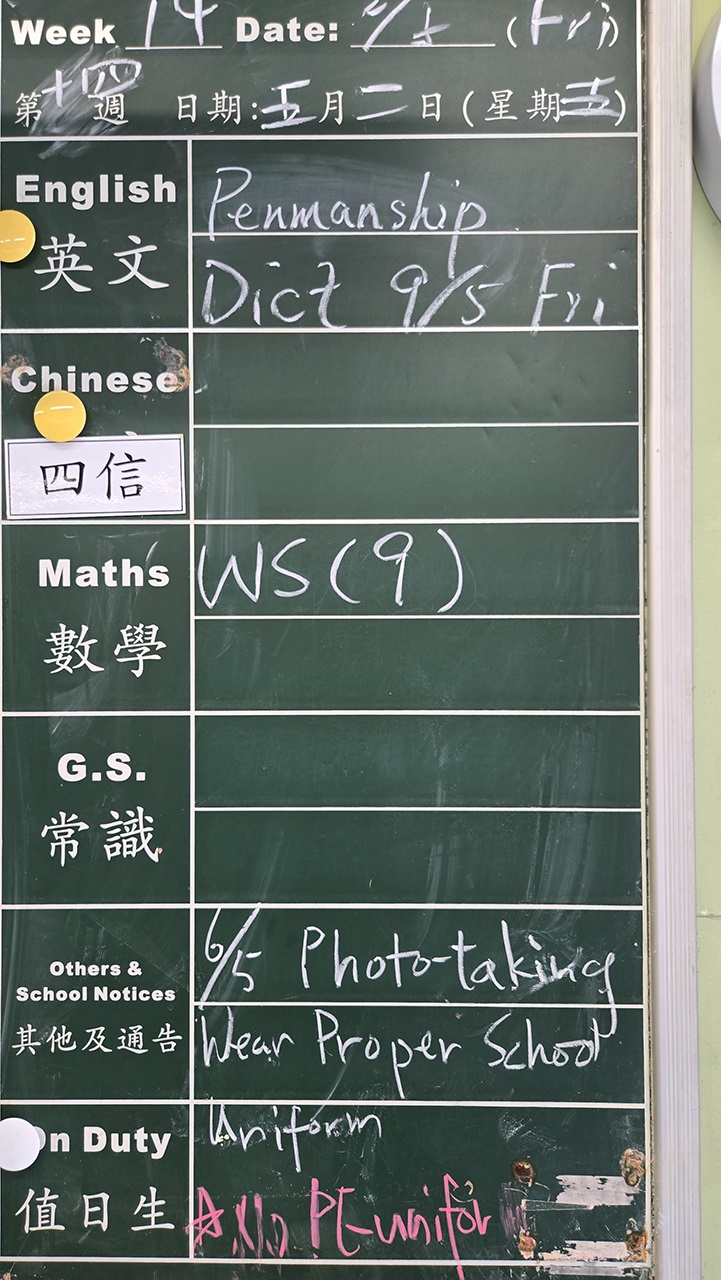 Week 14 Date: 2/5 (Fri)
第十四週 日期:五月二日(星期五)
English Penmanship
英文 Dict 9/5 Fri
Chinese
四信
Maths WS(9)
數學
G.S.
常識
6/5 Photo-taking
Others &
School Notices
其他及通告 Wear Proper School
On Duty Uniform
值日生 PE-unifor